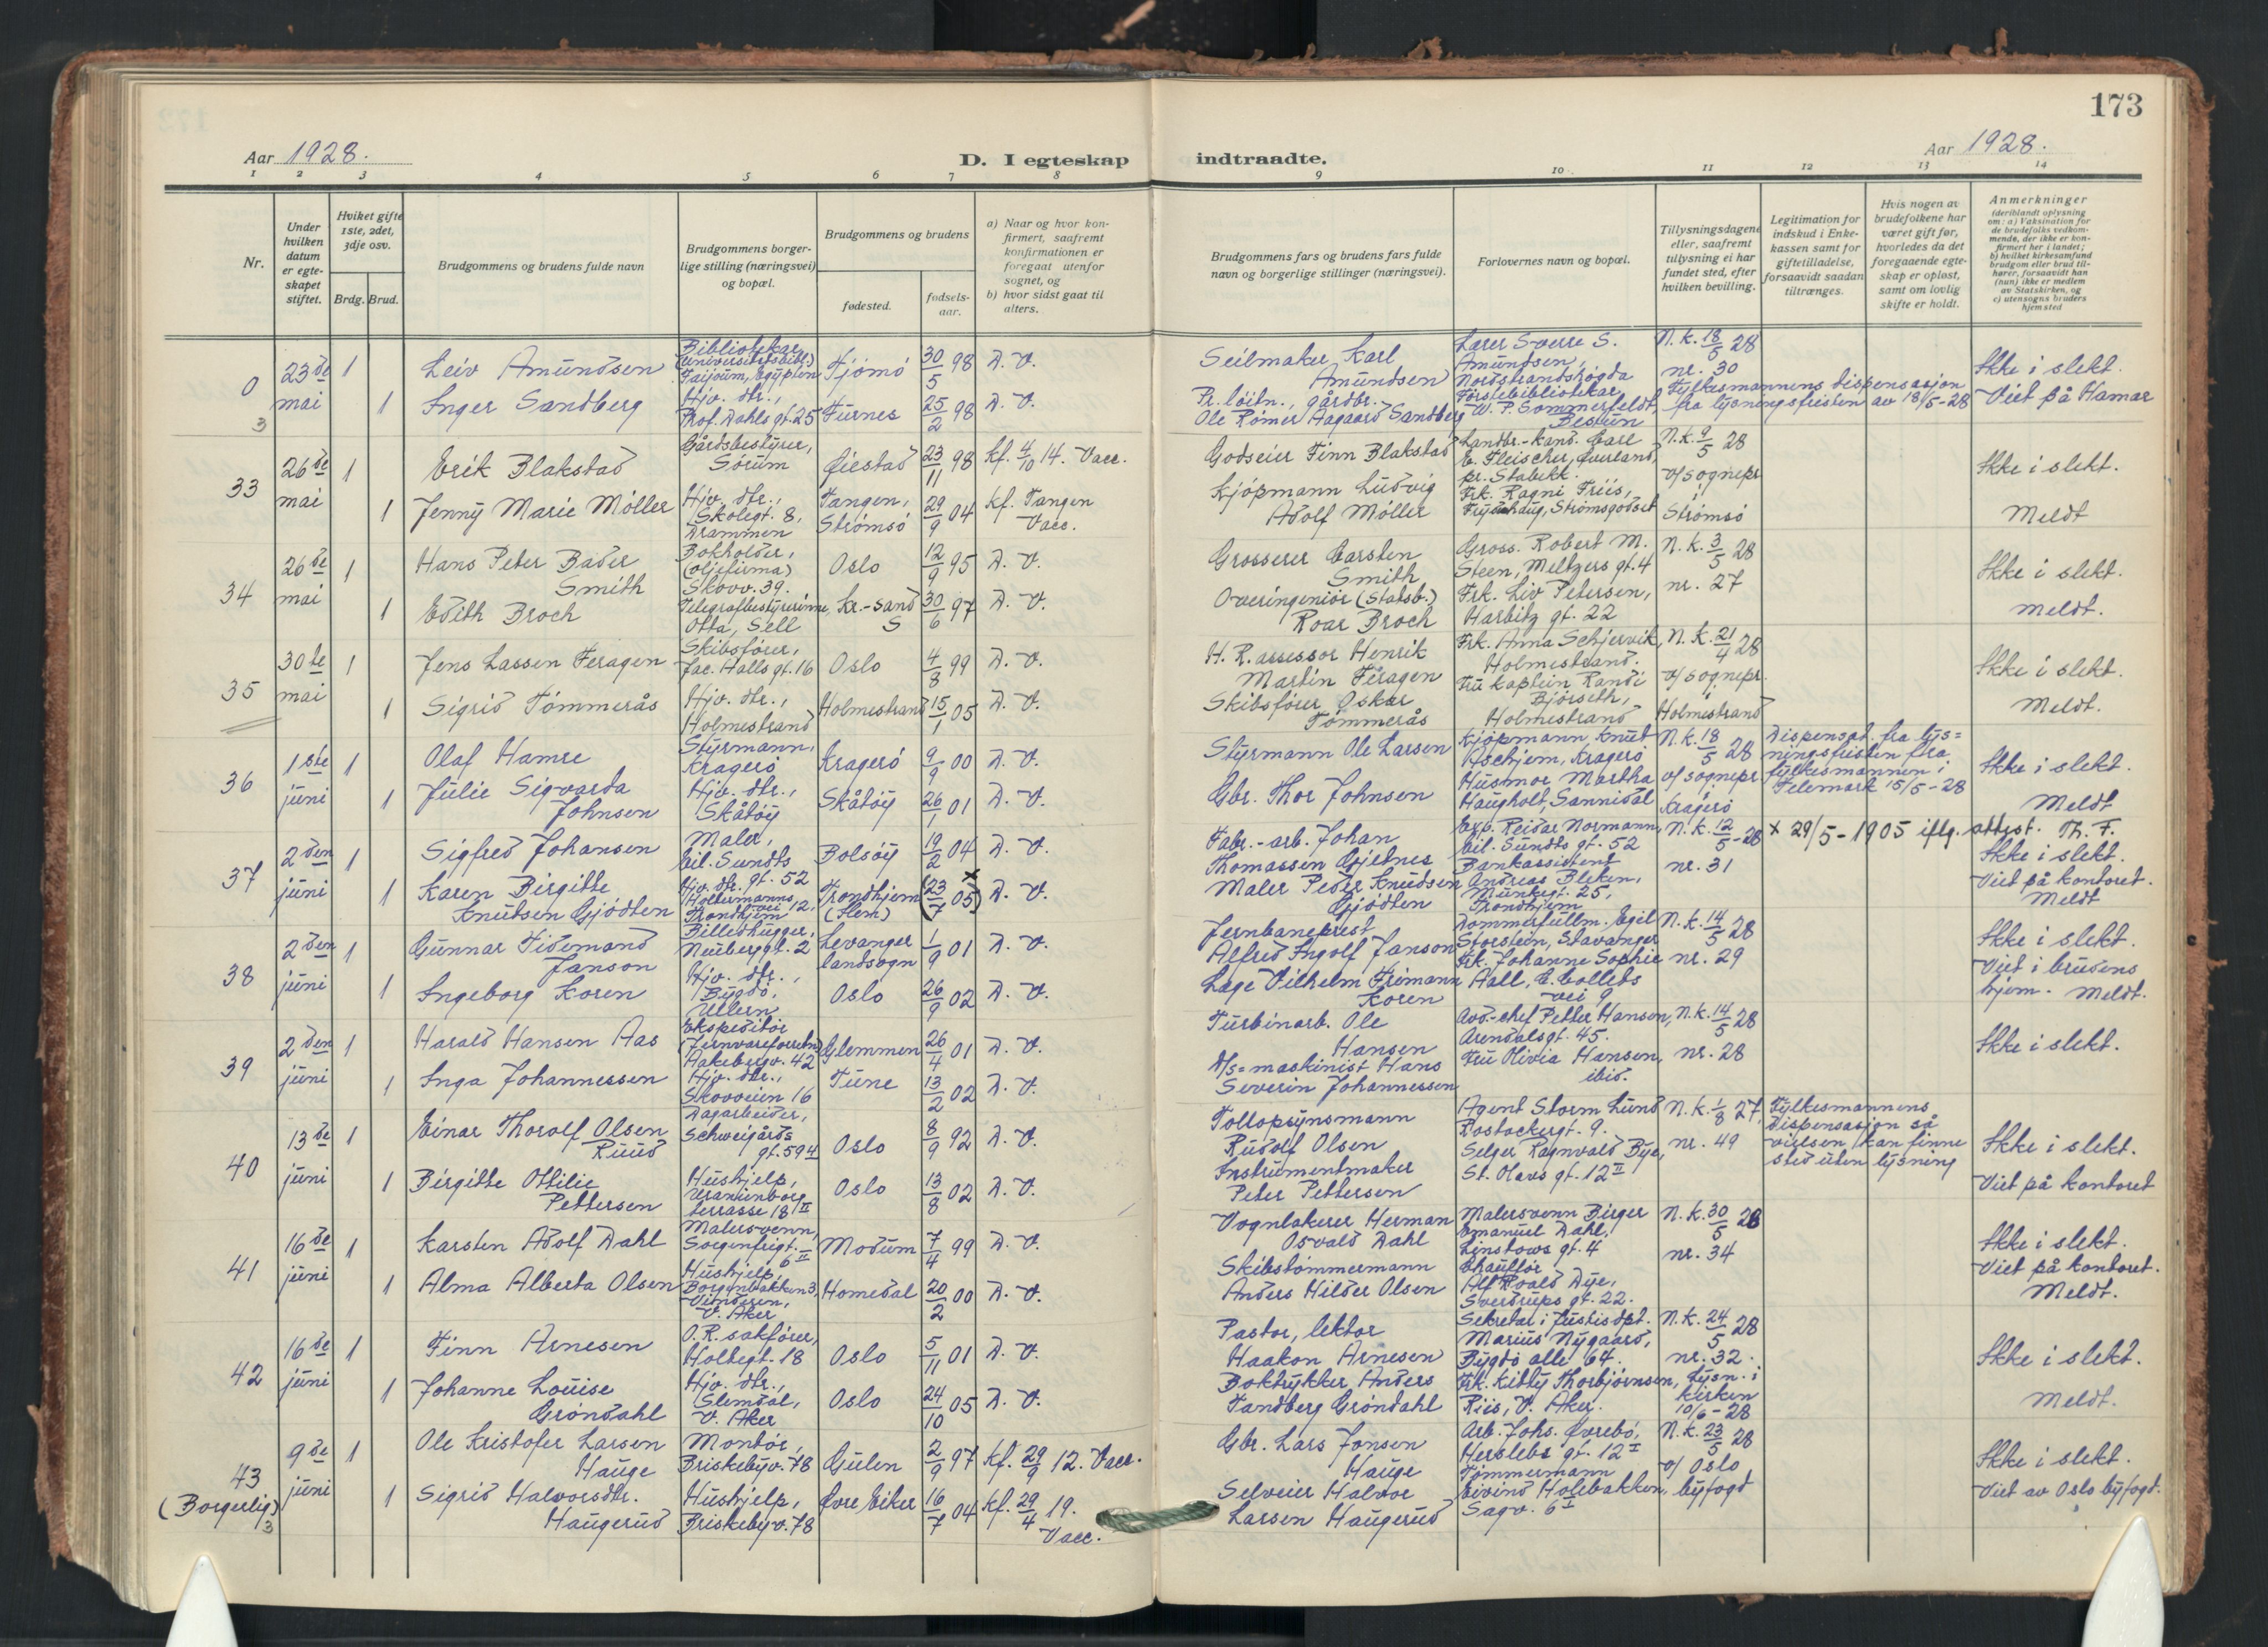 173
Aar 1928.
D. I egteskap indtraadte.
Aar 1928.
1 2 3 4 5 6 7 8 9 10 11 12 13 14
Nr.
Under hvilken datum er egteskapet stiftet.
Hvilket gifte 1ste, 2det, 3dje osv.
Brdg. Brud.
Brudgommens og brudens fulde navn
Brudgommens borgerlige stilling (næringsvei) og bopæl.
Brudgommens og brudens
fødested.
fødselsaar.
a) Naar og hvor konfirmert, saafremt konfirmationen er foregaat utenfor sognet, og
b) hvor sidst gaat til alters.
Brudgommens fars og brudens fars fulde navn og borgerlige stillinger (næringsvei).
Forlovernes navn og bopæl.
Tillysningsdagene eller, saafremt tillysning ei har fundet sted, efter hvilken bevilling.
Legitimation for indskud i Enkekassen samt for giftetilladelse, forsaavidt saadan tiltrænges.
Hvis nogen av brudefolkene har været gift før, hvorledes da det foregaaende egteskap er opløst, samt om lovlig skifte er holdt.
Anmerkninger
(deriblandt oplysning om: a) Vaksination for de brudefolks vedkommende, der ikke er konfirmert her i landet; b) hvilket kirkesamfund brudgom eller brud tilhører, forsaavidt han (hun) ikke er medlem av Statskirken, og c) utensogns bruders hjemsted
0 3
23de mai
1 Leiv Amundsen
Bibliotekar (Universitetsbibl.) Faijoum, Egypten
Tjømø 30/5 98 D. V.
Seilmaker Karl Amundsen
Lærer Sverre S. Amundsen, Nordstrandshøgda
N. k. 18/5 28 nr. 30
Ikke i slekt.
1 Inger Sandberg
Hjv. dtr., Prof. Dahls gt. 25
Furnes 25/2 98 D. V.
Pr. løitn., gårdbr. Ole Rømer Aagaard Sandberg
Førstebibliotekar W. P. Sommerfeldt, Bestun
Fylkesmannens dispensasjon fra lysningsfristen av 18/5-28
Viet på Hamar
33
26de mai
1 Erik Blakstad
Gårdsbestyrer, Sørum
Øiestad 23/11 98 kf. 4/10 14. Vacc.
Godseier Finn Blakstad
Landbr.-kand. Carl E. Fleischer, Øverland, pr. Stabekk.
N. k. 9/5 28 v/ sognepr. i Strømsø
Ikke i slekt.
1 Jenny Marie Möller
Hjv. dtr., Skolegt. 8, Drammen
Tangen, Strømsø 29/9 04 kf. Tangen Vacc.
Kjøpmann Ludvig Adolf Møller
Frk. Ragni Friis, Strømsgodset
Meldt
34
26de mai
1 Hans Peter Bader Smith
Bokholder, (oljefirma) Skovv. 39.
Oslo 12/9 95 D. V.
Grosserer Carsten Smith
Gross. Robert M. Steen, Meltzers gt. 4
N. k. 3/5 28 nr. 27
Ikke i slekt.
1 Edith Broch
Telegrafbestyrerinne, Otta, Sell
Kr.-sand S 30/6 97 D. V.
Overingeniør (Statsb.) Roar Broch
Frk. Liv Petersen, Harbitz gt. 22
Meldt.
35
30te mai
1 Jens Lassen Feragen
Skibsfører, Jac. Halls gt. 16
Oslo 4/8 99 D. V.
H. R. assessor Henrik Martin Feragen
Frk. Anna Schjervik, Holmestrand.
N. k. 21/4 28 v/ sognepr. i Holmestrand
Ikke i slekt.
1 Sigrid Tømmerås
Hjv. dtr., Holmestrand
Holmestrand 15/1 05 D. V.
Skibsfører Oskar Tømmerås
Fru kaptein Randi Bjørseth, Holmestrand
Meldt.
36
1ste juni
1 Olaf Hamre
Styrmann, Kragerø
Kragerø 9/9 00 D. V.
Styrmann Ole Larsen
Kjøpmann Knut Aschjem, Kragerø
N. k. 18/5 28 v/ sognepr. i Kragerø
Dispensat. fra lysningsfristen fra fylkesmannen i Telemark 15/5-28
Ikke i slekt.
1 Julie Sigvarda Johnsen
Hjv. dtr., Skåtøy
Skåtøy 26/1 01 D. V.
Gbr. Thor Johnsen
Husmor Martha Haugholt, Sannidal
Meldt
37
2den juni
1 Sigfred Johansen
Maler, Eil. Sundts gt. 52
Bolsøy 19/2 04 D. V.
Fabr.-arb. Johan Thomassen Gjetnes
Exp. Reidar Normann, Eil. Sundts gt. 52
N. k. 12/5-28 nr. 31
x 29/5-1905 iflg. attest. Th. F.
Ikke i slekt.
1 Karen Birgitte Knutsen Gjødten
Hjv. dtr. Holtermanns vei 12, Trondhjem
Trondhjem (Ilem) (23/7 05) x D. V.
Maler Peder Knudsen Gjødten
Bankassistent Andreas Bleken, Munkegt. 25, Trondhjem
Viet på kontoret. Meldt
38
2den juni
1 Gunnar Tidemand Janson
Billedhugger, Neuberggt. 2
Levanger landsogn 1/9 01 D. V.
Jernbaneprest Alfred Ingolf Janson
Dommerfullm. Egil Storstein, Stavanger
N. k. 14/5 28 nr. 29
Ikke i slekt.
1 Ingeborg Koren
Hjv. dtr., Bygdø, Ullern
Oslo 26/9 02 D. V.
Læge Vilhelm Frimann Koren
Frk. Johanne Sophie Aall, C. Colletts vei 9
Viet i brudens hjem. Meldt.
39
2den juni
1 Harald Hansen Aas
Ekspeditør (Jernvareforretn.) Aakebergv. 42
Glemmen 26/4 01 D. V.
Turbinarb. Ole Hansen
Avd.-chef Petter Hansen, Arendalsgt. 45.
N. k. 14/5 28 nr. 28
Ikke i slekt.
1 Inga Johannessen
Hjv. dtr., Skovveien 16
Tune 13/2 02 D. V.
D/s=maskinist Hans Severin Johannessen
Fru Olivia Hansen, ibid.
40
13de juni
1 Einar Thorolf Olsen Ruud
Dagarbeider, Schweigårds=gt. 594
Oslo 8/9 92 D. V.
Tollopsynsmann Rudolf Olsen
Agent Storm Lund Rostockergt. 9.
N. k. 1/8 27, nr. 49
Fylkesmannens dispensasjon så vielsen kan finne sted uten lysning
Ikke i slekt.
1 Birgitte Ottilie Pettersen
Hushjelp, Uranienborg terrasse 18 II
Oslo 13/8 02 D. V.
Instrumentmaker Peter Pettersen
Selger Ragnvald Bye, St. Olavs gt. 12 II
Viet på kontoret
41
16de juni
1 Karsten Adolf Dahl
Malersvenn, Sorgenfrigt. 6 II
Modum 7/4 99 D. V.
Vognlakerer Herman Osvald Dahl
Malersvenn Birger Emanuel Dahl, Linstows gt. 4
N. k. 30/5 28 nr. 34
Ikke i slekt.
1 Alma Alberta Olsen
Hushjelp, Borgenbakken 3, Vinderen, V. Aker
Homedal 20/2 00 D. V.
Skibstømmermann Anders Hilder Olsen
Chauffør Alf Roald Dye, Sverdrups gt. 22.
Viet på kontoret. Meldt.
42
16de juni
1 Finn Arnesen
O. R. sakfører, Holtegt. 18
Oslo 5/11 01 D. V.
Pastor, lektor Haakon Arnesen
Sekretær i Justisdpt. Marius Nygaard, Bygdø allé 64.
N. k. 24/5 28 nr. 32.
Ikke i slekt.
1 Johanne Louise Grøndahl
Hjv. dtr., Slemdal, V. Aker
Oslo 24/10 05 D. V.
Boktrykker Anders Tandberg Grøndahl
Frk. Kitty Thorbjørnsen, Riis, V. Aker.
lysn. i kirken 10/6-28
Meldt.
43 (Borgerlig) 3
9de juni
1 Ole Kristofer Larsen Hauge
Montør, Briskebyv. 78
Gulen 2/9 97 kf. 29/9 12. Vacc.
Gbr. Lars Jonsen Hauge
Arb. Johs. Øvrebø, Herslebs gt. 12 I
N. k. 23/5 28 v/ Oslo byfogd
Ikke i slekt.
1 Sigrid Halvorsdtr. Haugerud
Hushjelp, Briskebyv. 78
Øvre Eiker 16/7 04 kf. 29/4 19. Vacc.
Selveier Halvor Larsen Haugerud
Tømmermann Eivind Holebakken, Sagv. 6 I
Viet av Oslo byfogd.